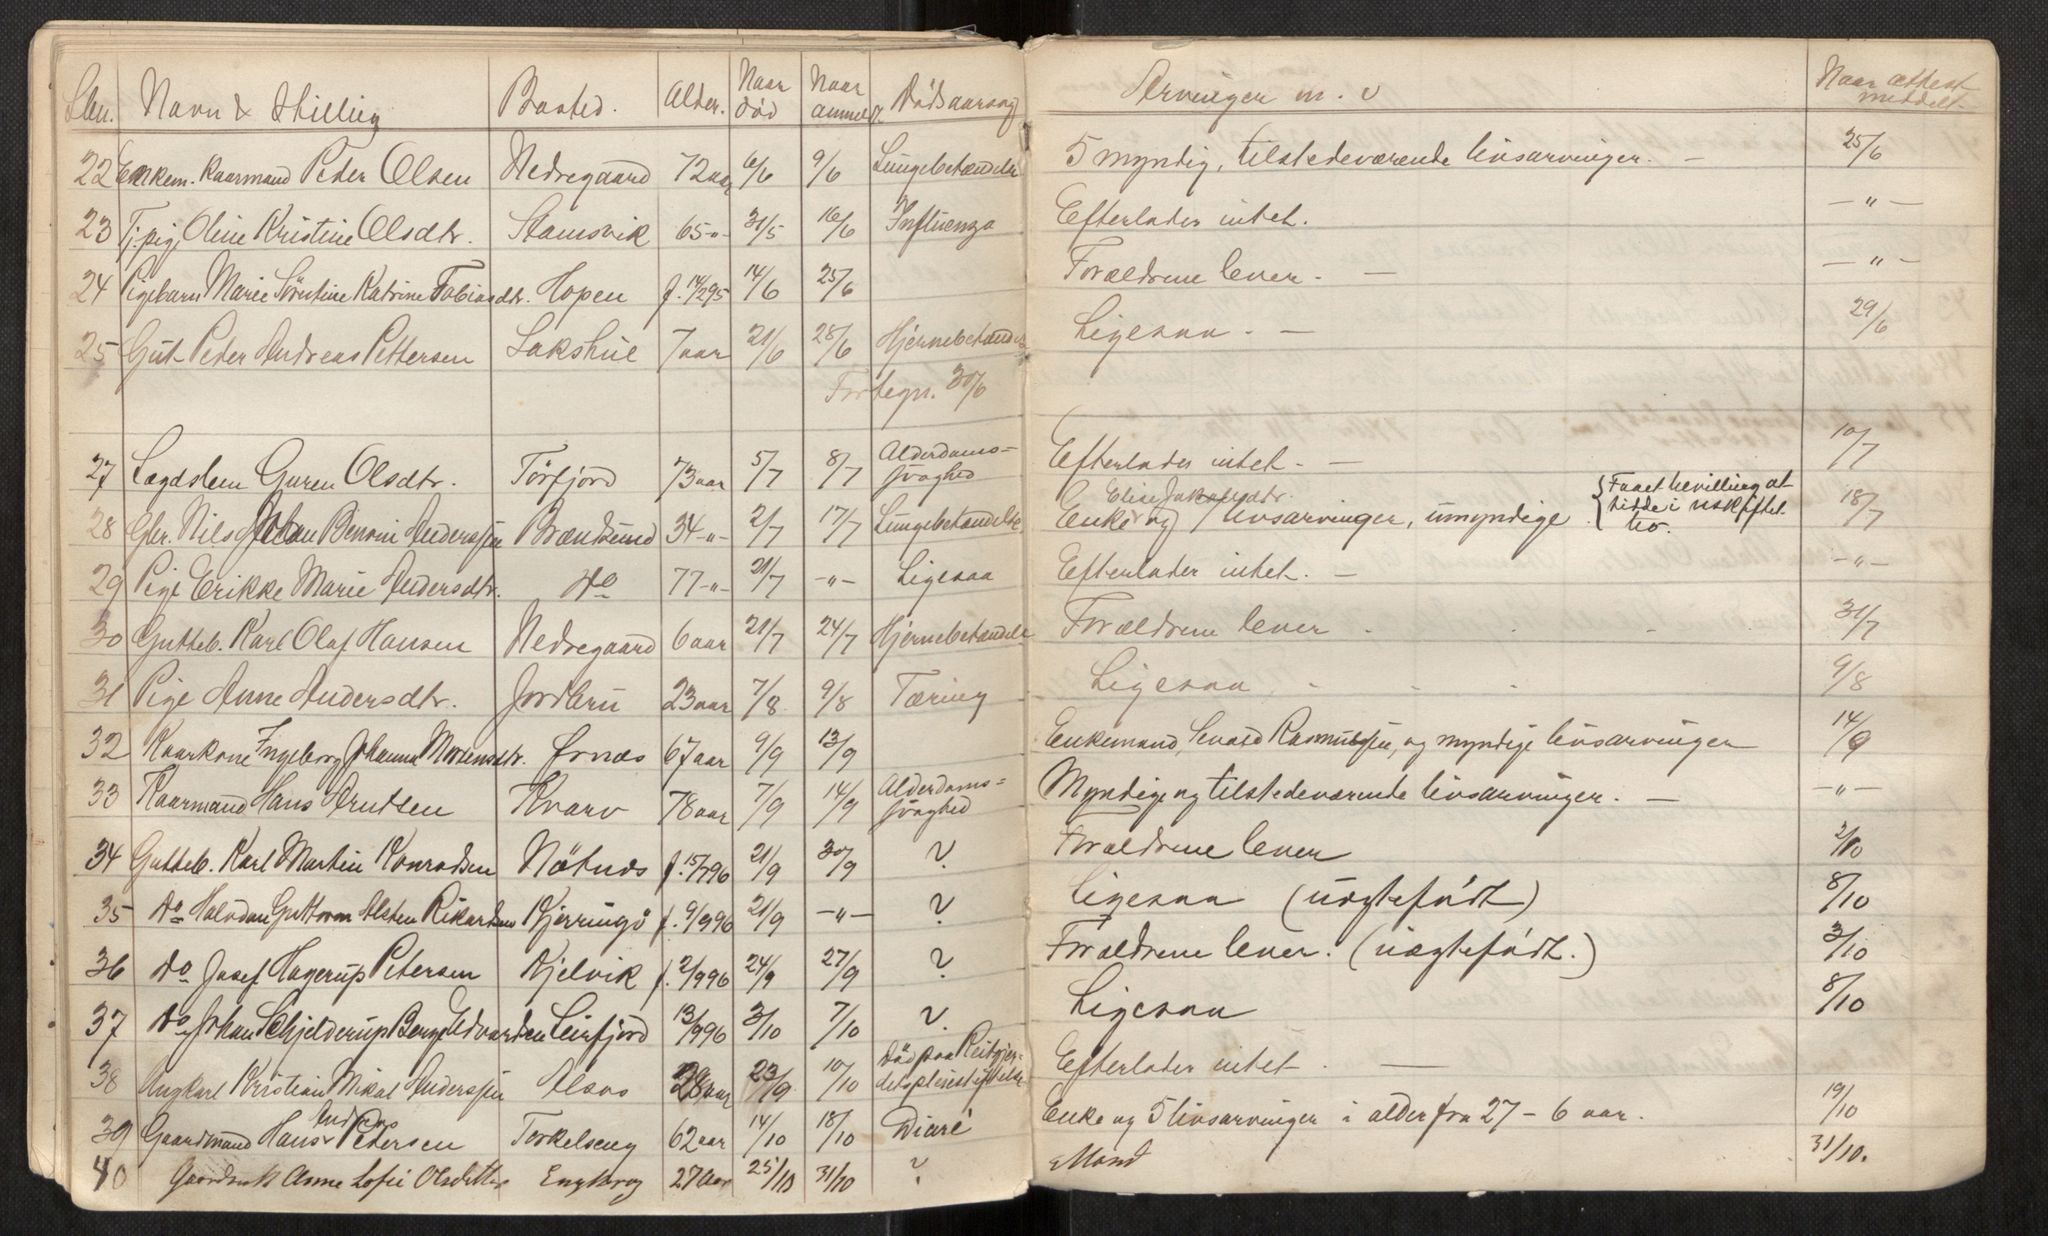 Løbn. Navn & Stilling Bosted. Alder. Naar død Naar anmeldt Dødsaarsag Arvinger m. v Naar attest meddelt
22 Enkem. Kaarmand Peder Olsen Nedregaard 72 aar 6/6 9/6 Lungebetændelse 5 myndig, tilstedeværende livsarvinger. — 25/6
23 Tj. pig. Oline Kristine Olsdtr. Stamsvik 65 -"- 31/5 16/6 Influenza Efterlader intet. — " —
24 Pigebarn Marie Sörentine Katrine Tobiasdtr. Hopen f. 14/2 95 14/6 25/6 Forældrene lever. — — " —
25 Gut Peder Andreas Pettersen Lakshue 7 aar 21/6 28/6 Hjernebetændelse Ligesaa. — 29/6
Fortegn. 30/6
27 Lægdslem Guren Olsdtr. Törfjord 73 aar 5/7 8/7 Alderdoms= svaghed Efterlader intet. — 10/7
28 Gbr. Nils Johan Benoni Anderssen Brændsund 34 -"- 2/7 17/7 Lungebetændelse Enke Elise Jakobsdtr. og 7 livsarvinger, umyndige { Faaet bevilling at sidde i uskiftet bo. 18/7
29 Pige Erikke Marie Andersdtr. Do 77 -"- 21/7 -"- Ligesaa Efterlader intet. — -"-
30 Gutteb. Karl Olaf Hansen Nedregaard 6 aar 21/7 24/7 Hjernebetændelse Forældrene lever 31/7
31 Pige Anne Andersdtr. Jordbru 23 aar 7/8 9/8 Tæring Ligesaa 9/8
32 Kaarkone Ingeborg Johanna Mortensdtr. Ørnes 67 aar 9/9 13/9 Enkemand, Sevald Rasmussen, og myndige livsarvinger 14/9
33 Kaarmand Hans Arntsen Kvarv 78 aar 7/9 14/9 Alderdoms= svaghed Myndige og tilstedeværende livsarvinger. — -"-
34 Gutteb. Karl Martin Konradsen Nötnes f. 15/7 96 21/9 30/9 ? Forældrene lever 2/10
35 Do Halvdan Guttorm Alsten Rikardsen Kjerringö f. 9/9 96 21/9 -"- ? Ligesaa (uægtefødt) 8/10
36 Do Josef Hagerup Petersen Kjelvik f. 2/9 96 24/9 27/9 ? Forældrene lever. (uægtefödt.) 3/10
37 Do Johan Schjelderup Berg Edvardsen Leirfjord 13/9 96 3/10 7/10 ? Ligesaa 8/10
38 Ungkarl Kristian Mikal Anderssen Alsos 28 aar 23/9 10/10 Död paa Reitgjerdets pleiestiftelse Efterlader intet. —
39 Gaardmand Hans Andreas Pedersen Torkelseng 62 aar 14/10 18/10 Diaré Enke og 5 livsarvinger i alder fra 27 - 6 aar. 19/10
40 Anne Sofie Olsdatter Engbrog 27 Aar 25/10 31/10 ? Mand 31/10.